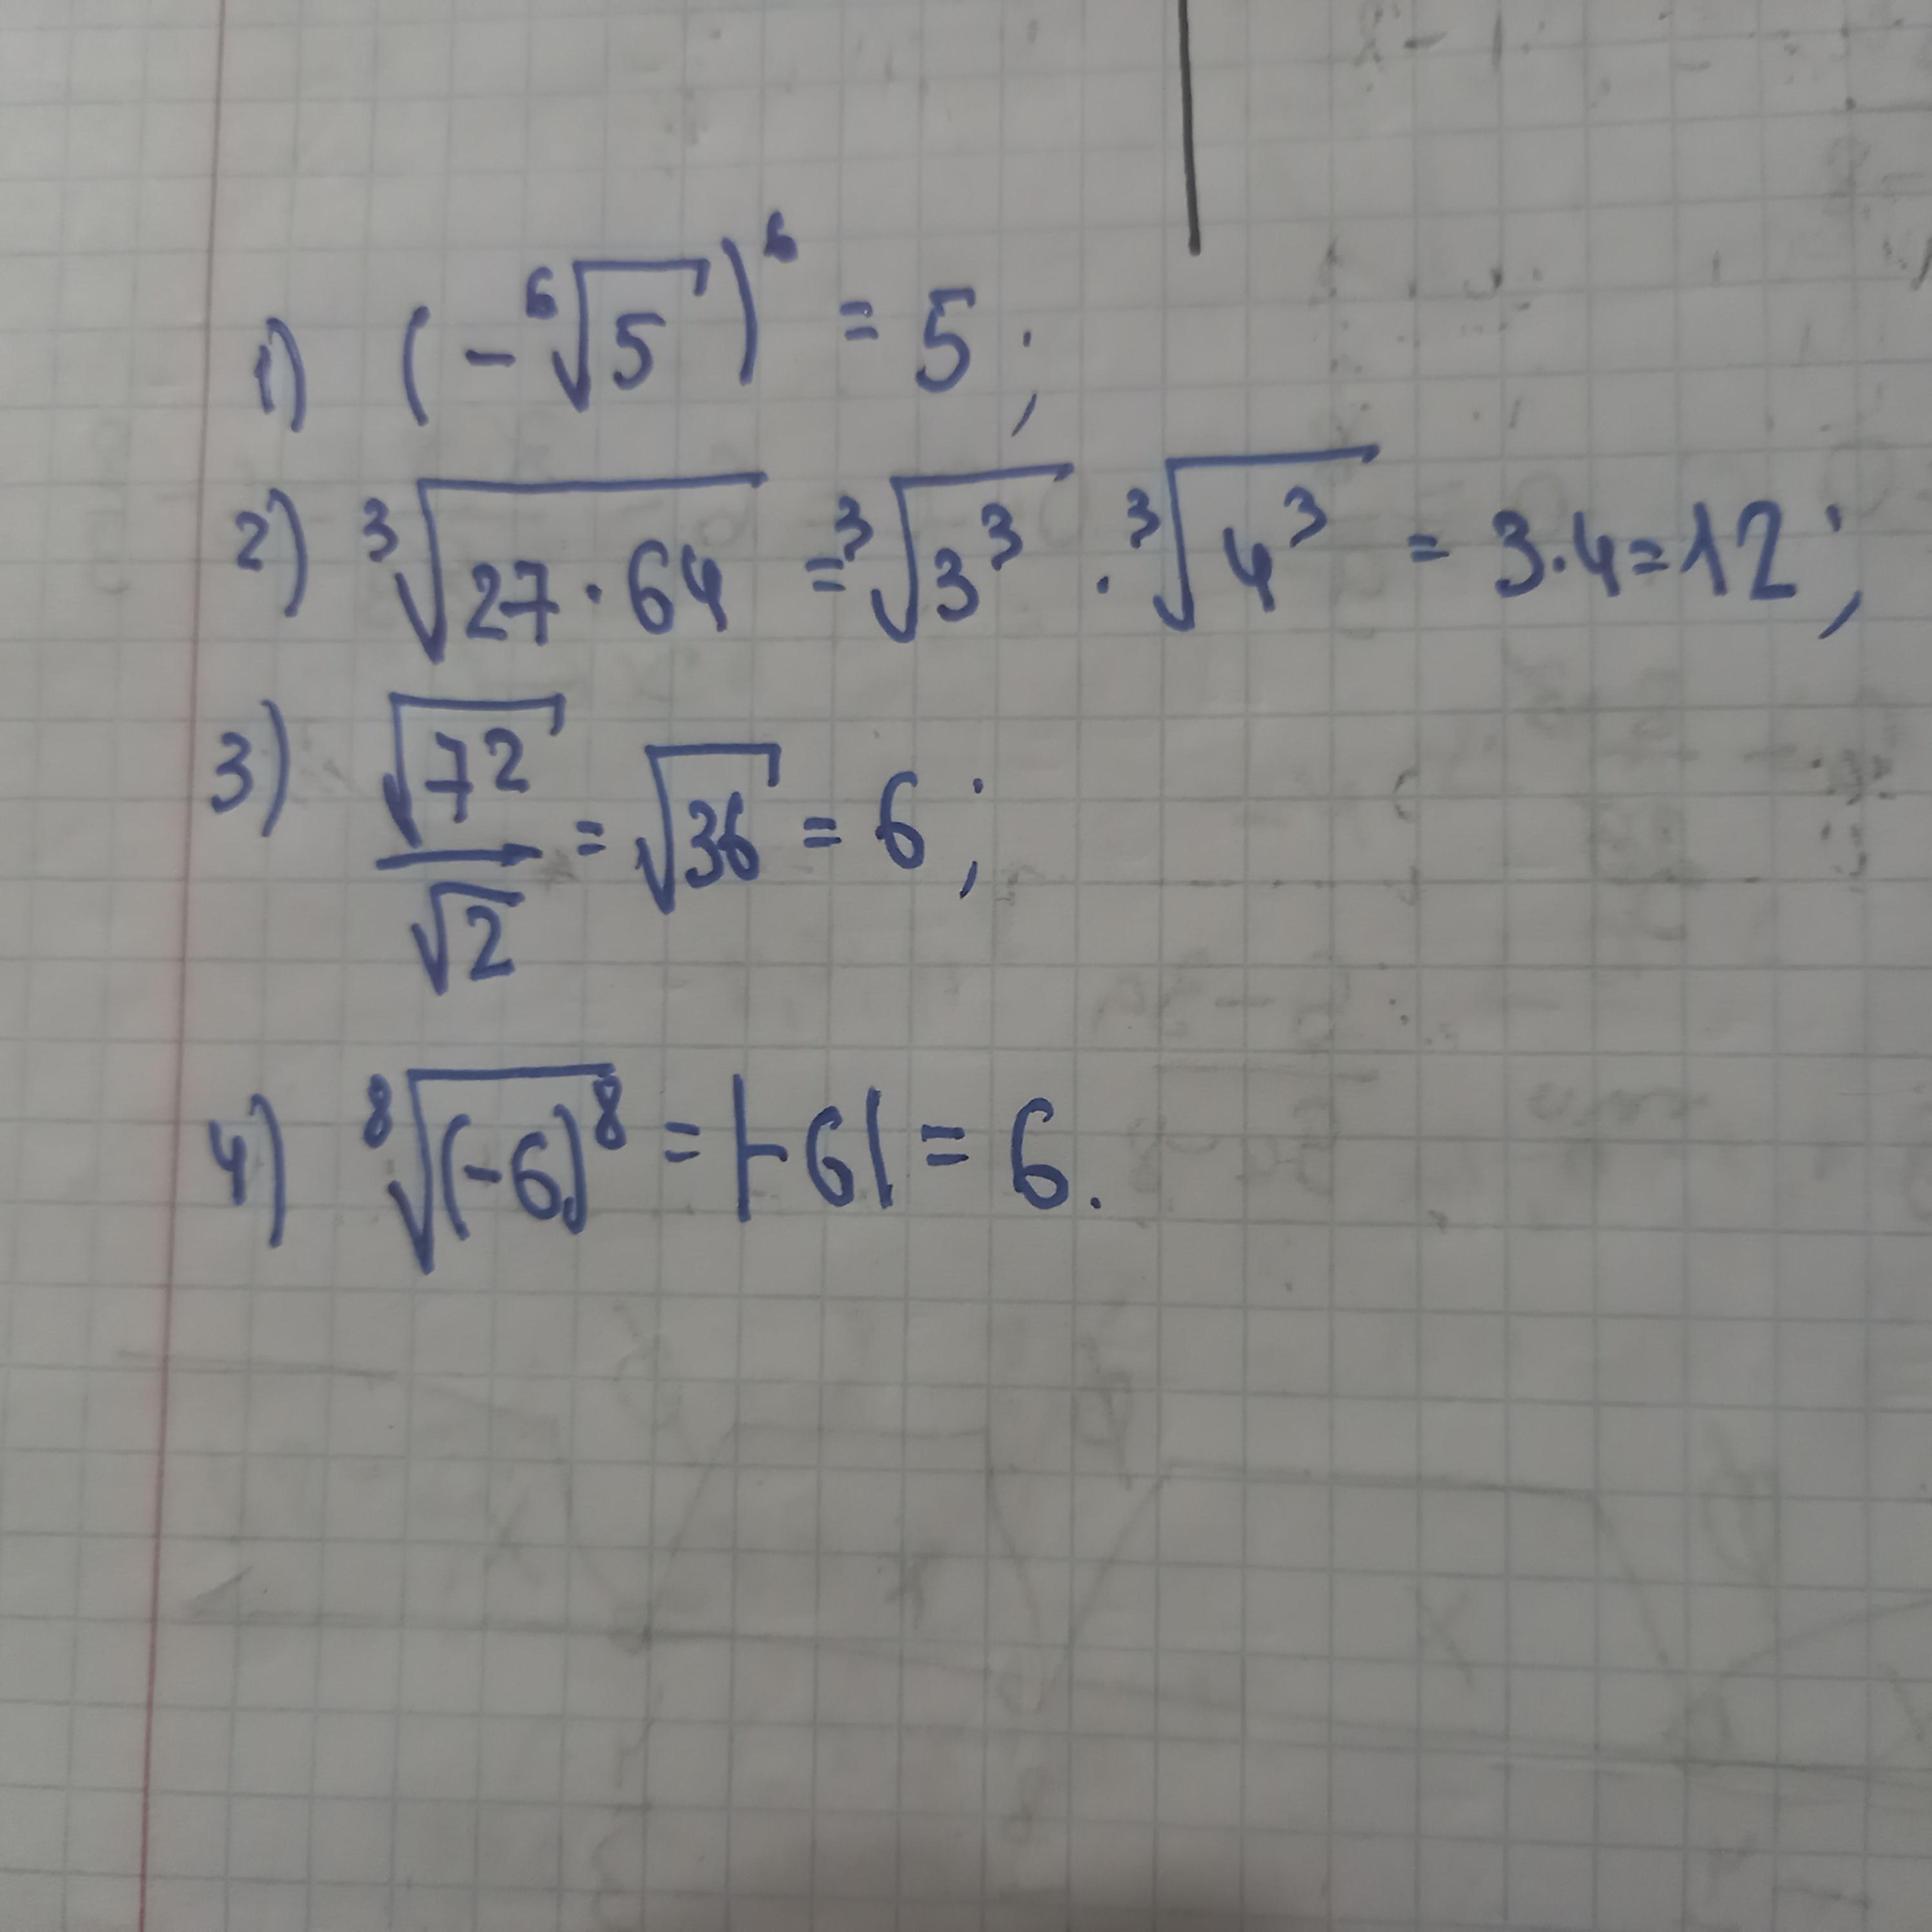 1) (-⁶√5)⁶ = 5;
2) ³√27·64 = ³√3³ · ³√4³ = 3·4=12;
3) √72/√2 = √36 = 6;
4) ⁸√(-6)⁸ = |-6| = 6.